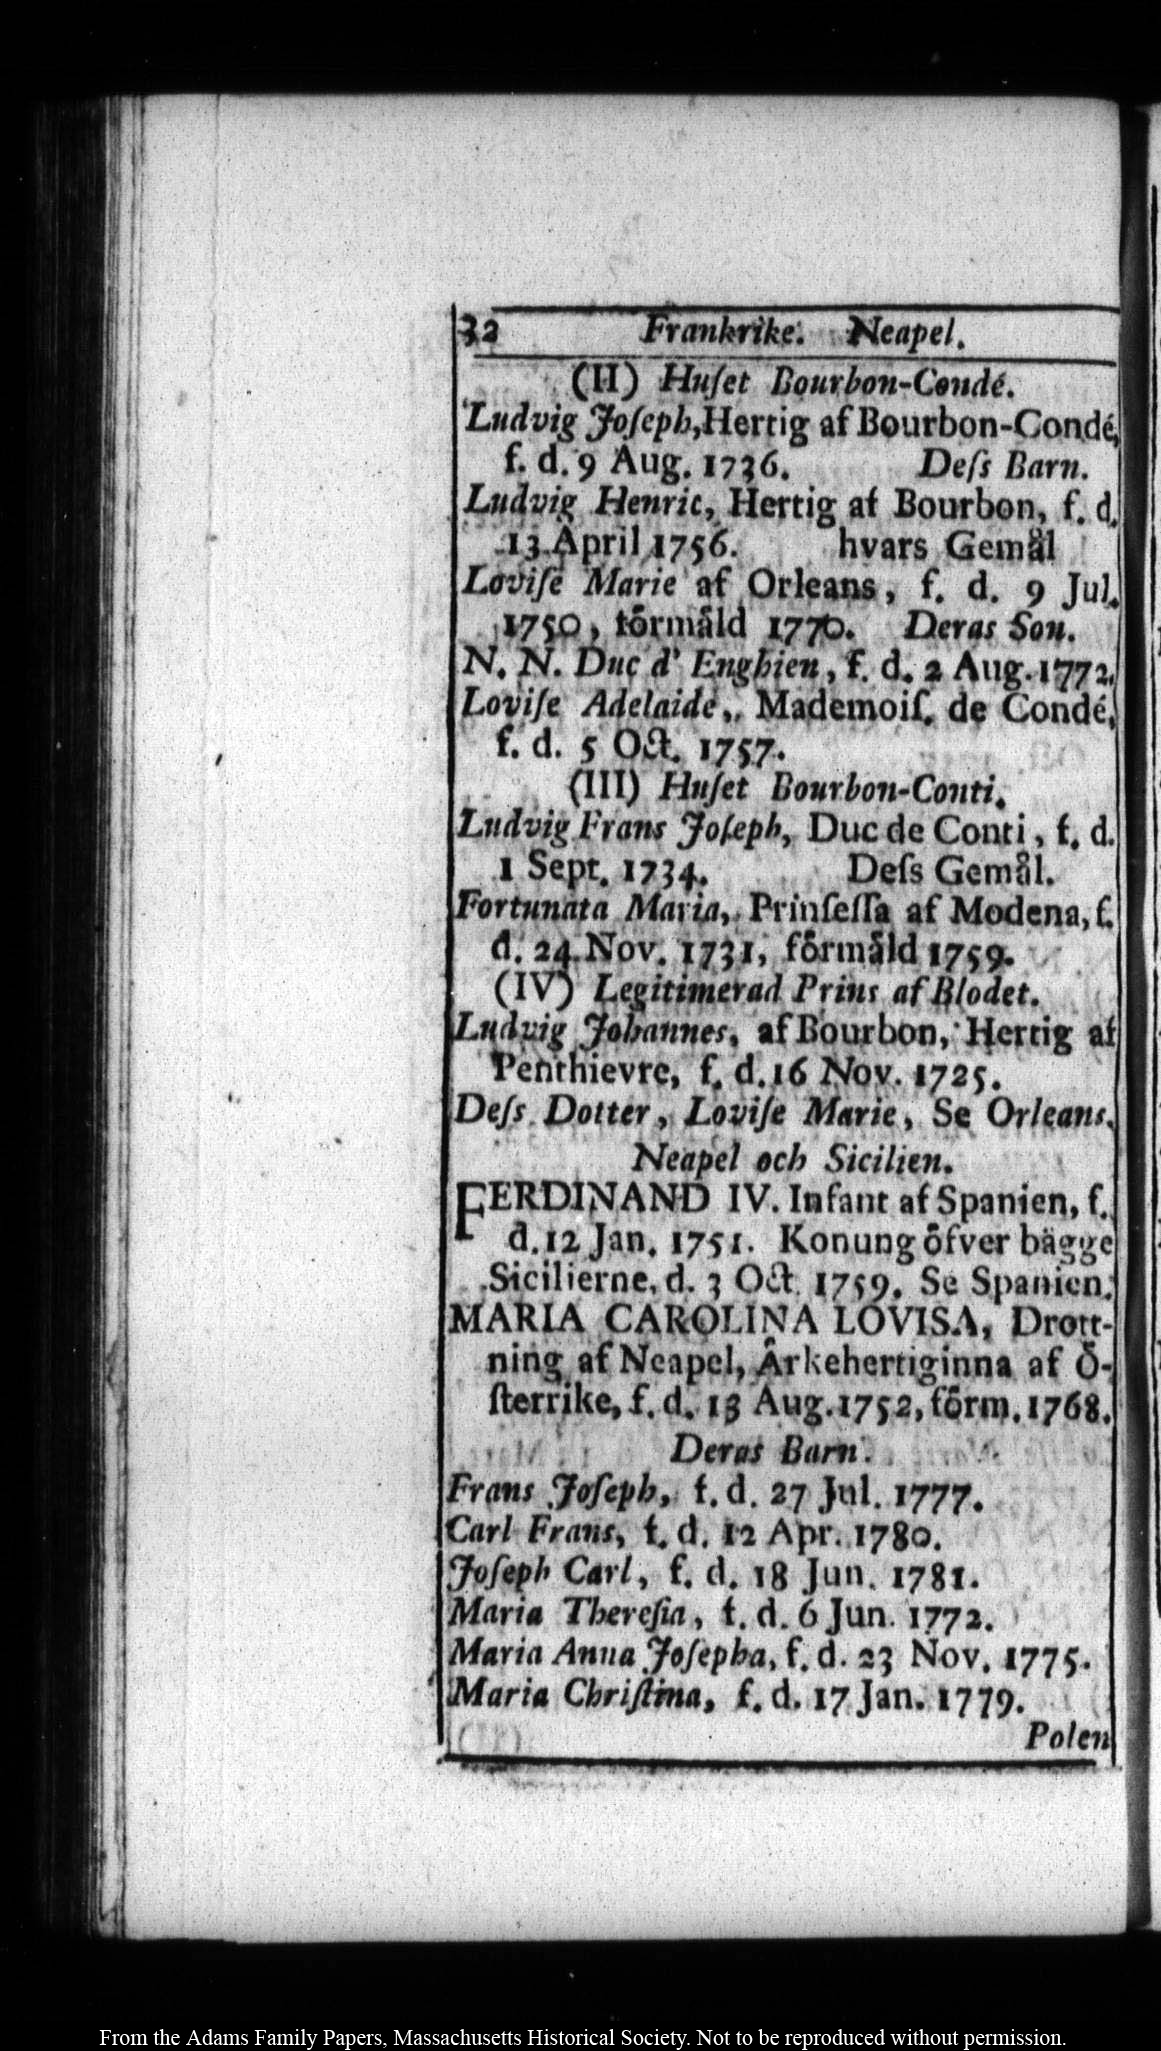 32 Frankrike. Neapel.
(II) Huſet Bourbon-Condé.
Ludvig Joſeph, Hertig af Bourbon-Condé,
f. d. 9 Aug. 1736. Deſs Barn.
Ludvig Henric, Hertig af Bourbon, f. d.
13 April 1756. hvars Gemål
Loviſe Marie af Orleans, f. d. 9 Jul.
1750, förmåld 1770. Deras Son.
N. N. Duc d' Enghien, f. d. 2 Aug. 1772.
Loviſe Adelaide, Mademoiſ. de Condé,
f. d. 5 Oct. 1757.
(III) Huſet Bourbon-Conti.
Ludvig Frans Joſeph, Duc de Conti, f. d.
1 Sept. 1734. Deſs Gemål.
Fortunata Maria, Prinſeſſa af Modena, f.
d. 24 Nov. 1731, förmåld 1759.
(IV) Legitimerad Prins af Blodet.
Ludvig Johannes, af Bourbon, Hertig af
Penthievre, f. d. 16 Nov. 1725.
Deſs Dotter, Loviſe Marie, Se Orleans.
Neapel och Sicilien.
FERDINAND IV. Infant af Spanien, f.
d. 12 Jan. 1751. Konung öfver bägge
Sicilierne, d. 3 Oct. 1759. Se Spanien.
MARIA CAROLINA LOVISA, Drott-
ning af Neapel, Årkehertiginna af Ö-
ſterrike, f. d. 13 Aug. 1752, förm. 1768.
Deras Barn.
Frans Joſeph, f. d. 27 Jul. 1777.
Carl Frans, f. d. 12 Apr. 1780.
Joſeph Carl, f. d. 18 Jun. 1781.
Maria Thereſia, f. d. 6 Jun. 1772.
Maria Anna Joſepha, f. d. 23 Nov. 1775.
Maria Chriſtina, f. d. 17 Jan. 1779.
Polen
From the Adams Family Papers, Massachusetts Historical Society. Not to be reproduced without permission.